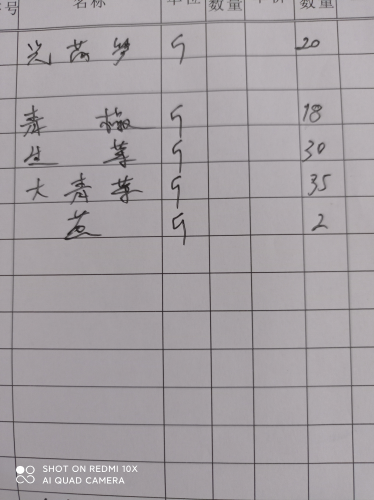 号 名称 单位 数量 单价 数量
光莴笋 斤 20
青椒 斤 18
生菜 斤 30
大青菜 斤 35
葱 斤 2
SHOT ON REDMI 10X
AI QUAD CAMERA